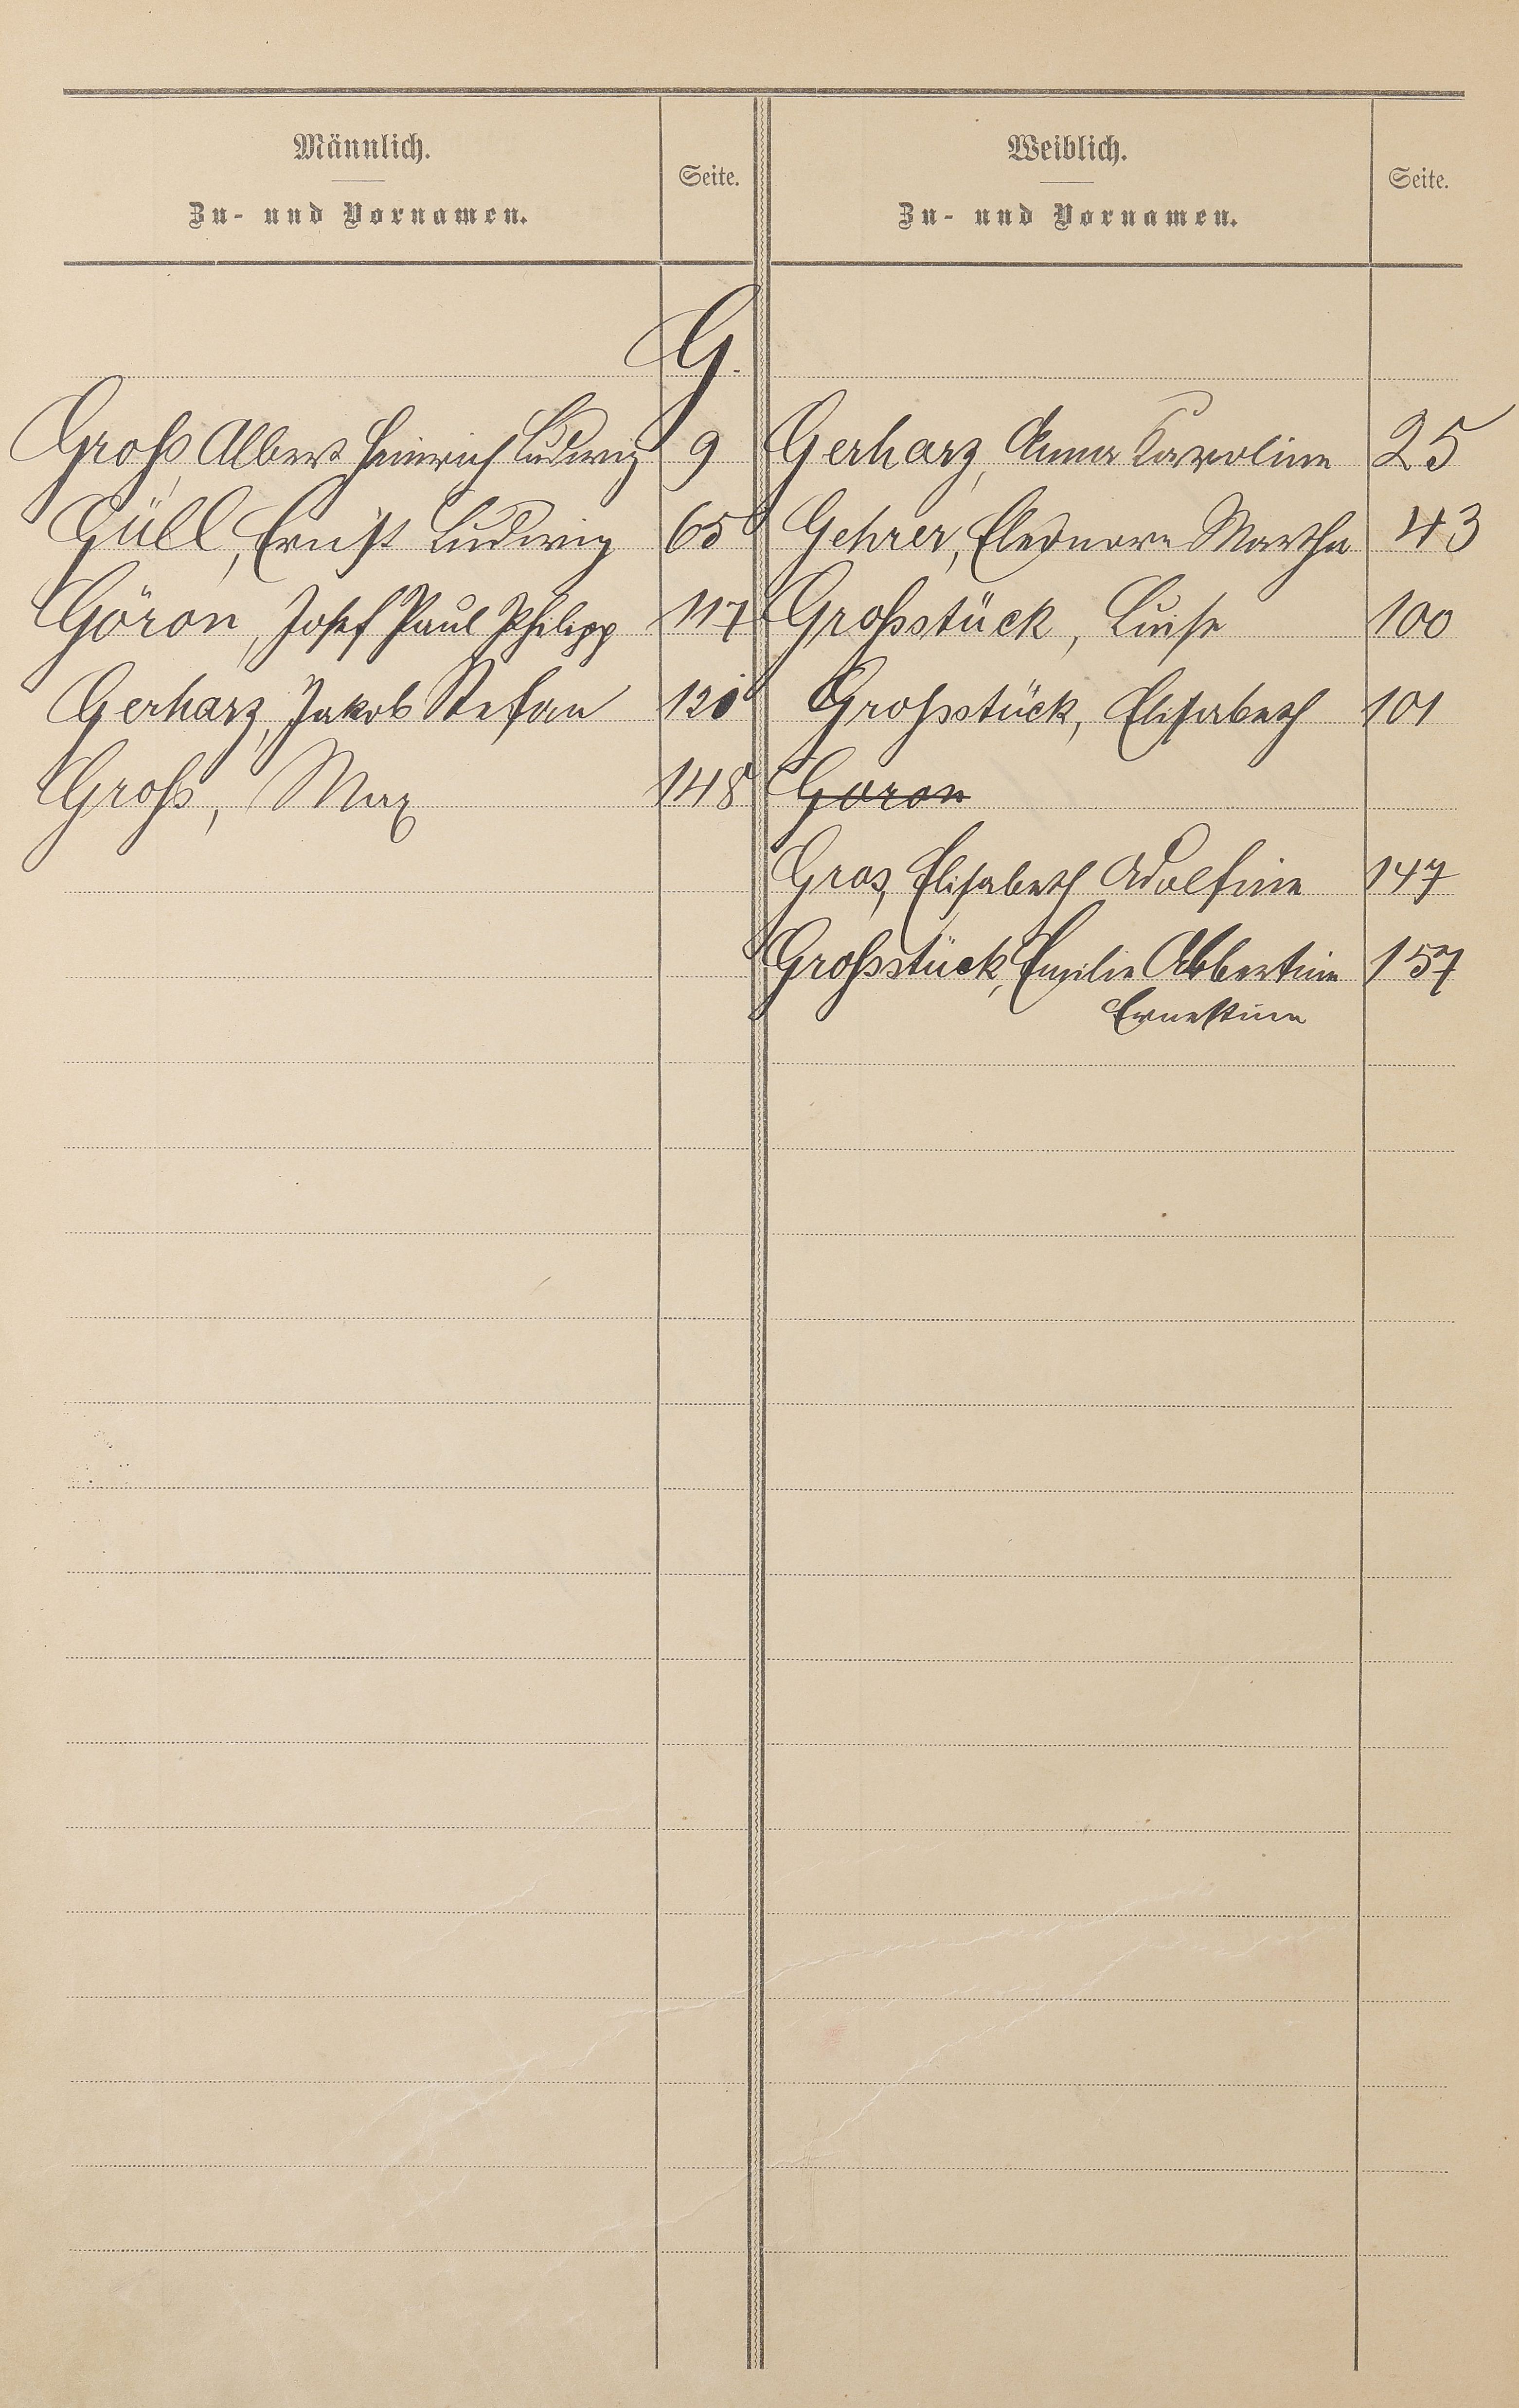 Männlich.
Zu- und Vornamen.
Seite.
Weiblich.
Zu- und Vornamen.
Seite.
G.
Groß, Albert Heinrich Ludwig 9
Güll, Ernst Ludwig 65
Göron, Josef Paul Philipp 117
Gerharz, Jakob Stefan
Groß, Max 148
Gerharz, Anna Karoline 25
Gehrer, Eleonore Martha 43
Großstück, Luise 100
Großstück, Elisabeth 101
Göron
Gros, Elisabeth Adolfine 147
Großstück, Emilie Albertine 157
Ernestine